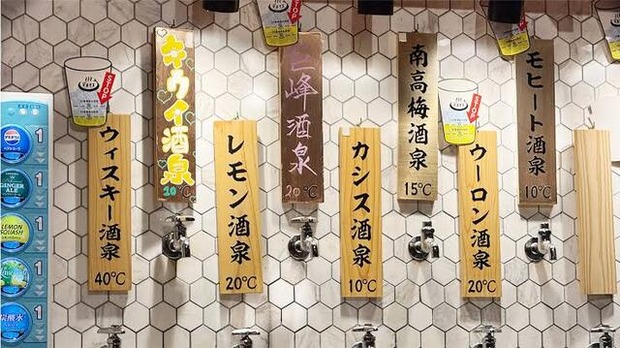 キウイ酒泉
10℃
巨峰酒泉
20℃
南高梅酒泉
15℃
モヒート酒泉
10℃
ウィスキー酒泉
40℃
レモン酒泉
20℃
カシス酒泉
10℃
ウーロン酒泉
20℃
STOP
STOP
STOP
1
GINGER
ALE
1
LEMON
SQUASH
1
1
炭酸水
1